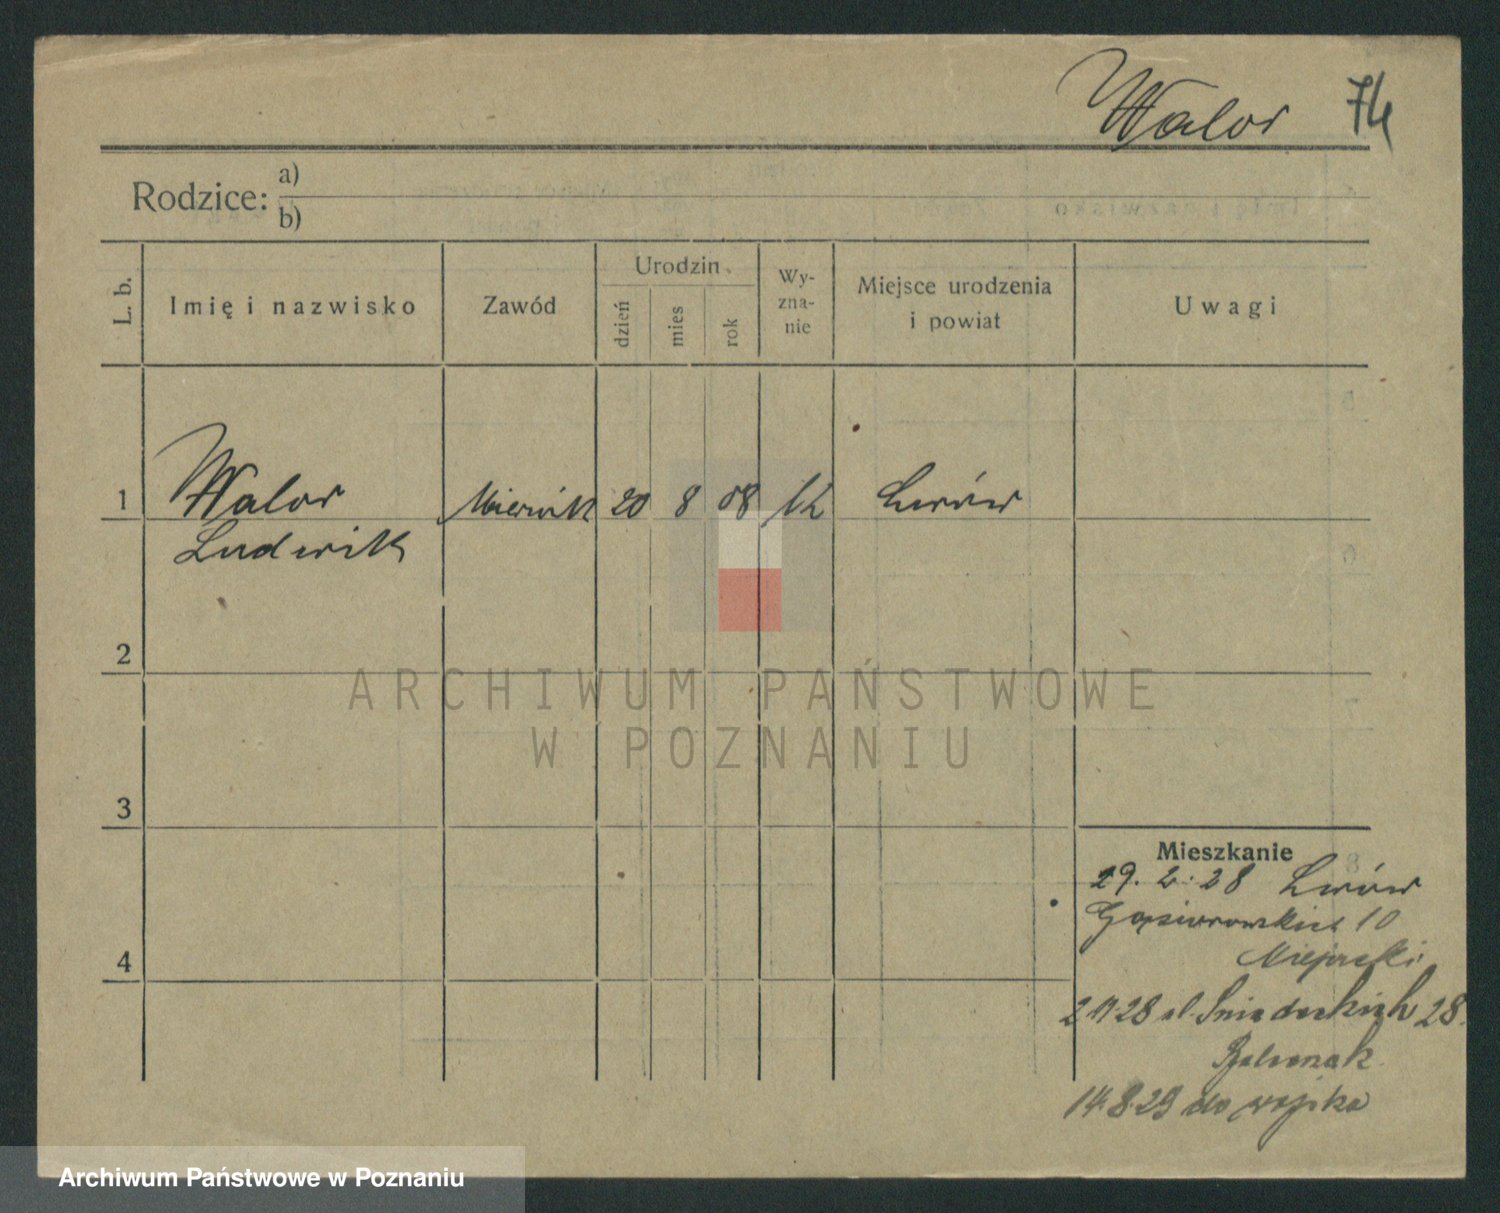 Walor 74
Rodzice: a)
b)
L. b.
Imię i nazwisko
Zawód
Urodzin
dzień
mies
rok
Wy-
zna-
nie
Miejsce urodzenia
i powiat
Uwagi
1 Walor 20 8 08 Lwów
Ludwik
2
3
4
Mieszkanie
29. 2. 28 Lwów
10
2 11 28 ul. Śniadeckich 28.
14.8.29 do wojska
ARCHIWUM PAŃSTWOWE
W POZNANIU
Archiwum Państwowe w Poznaniu